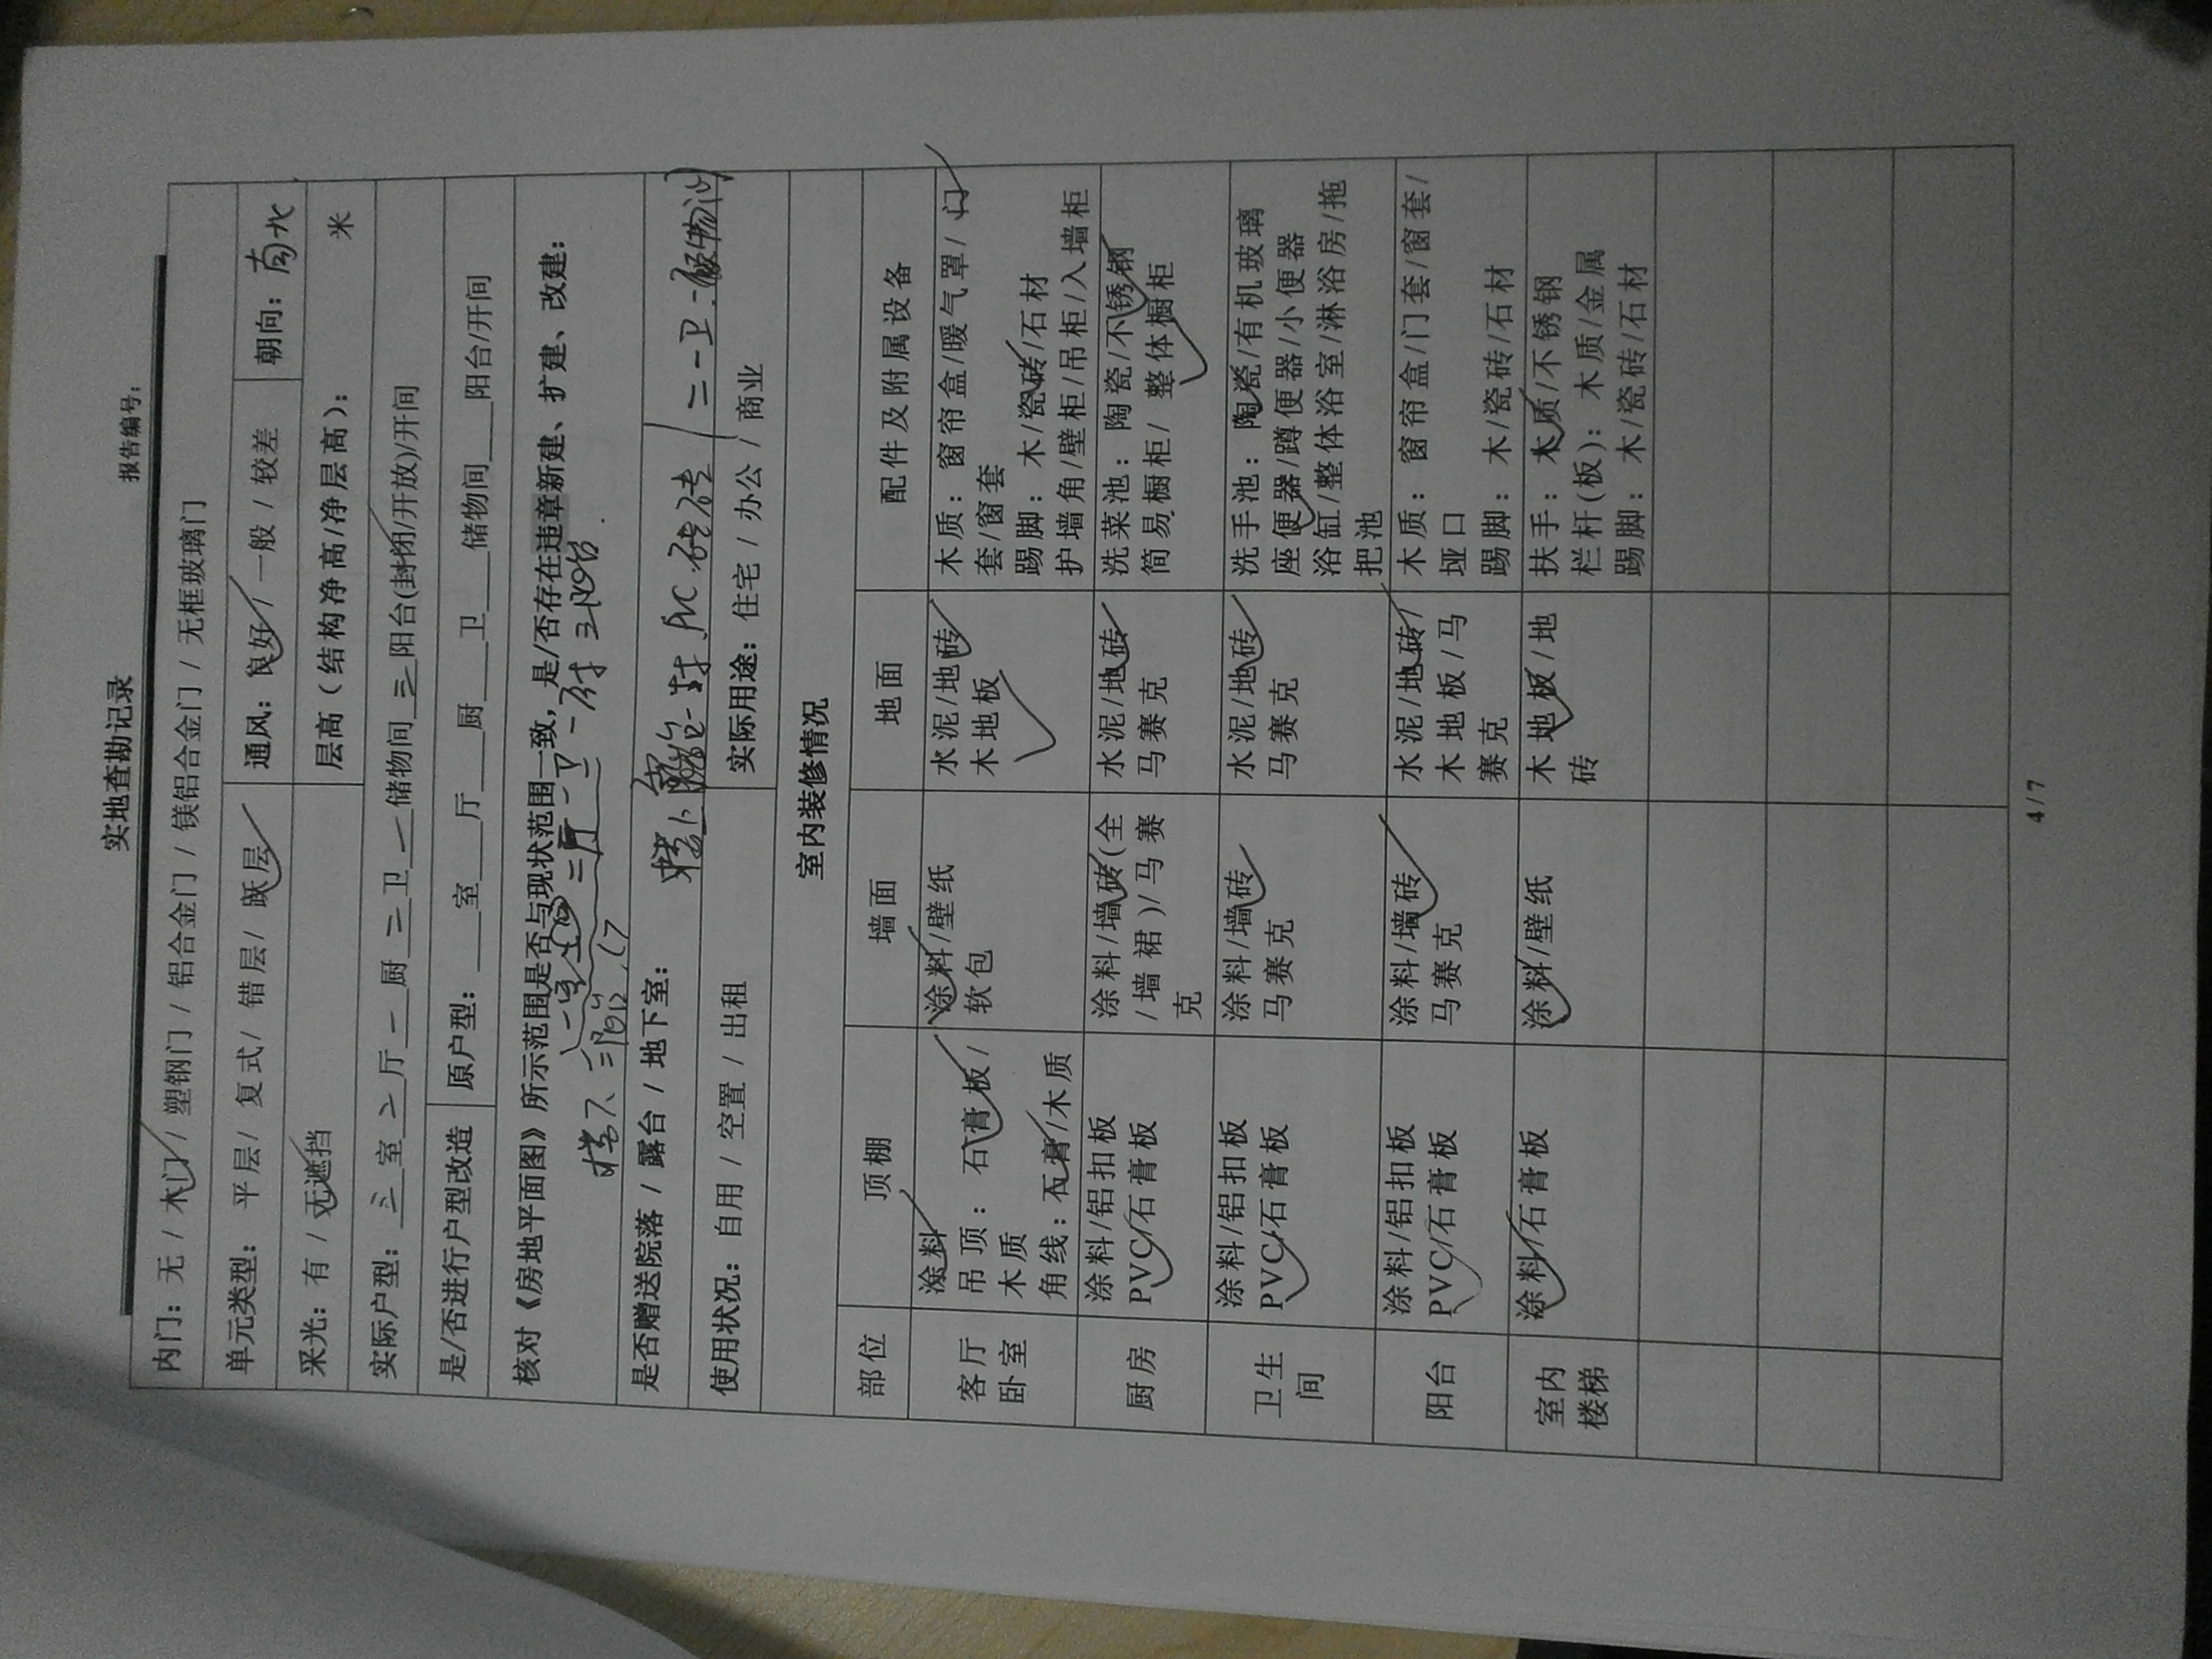 实地查勘记录
报告编号：
内门：无 / 木门 / 塑钢门 / 铝合金门 / 镁铝合金门 / 无框玻璃门
单元类型： 平层/ 复式/ 错层/ 跃层 通风：良好 / 一般 / 较差 朝向：南北
采光：有 / 无遮挡 层高（结构净高/净层高）： 米
实际户型：三室二厅一厨二卫一储物间三阳台(封闭/开放)/开间
是/否进行户型改造 原户型：___室___厅___厨___卫___储物间___阳台/开间
核对《房地平面图》所示范围是否与现状范围一致，是/否存在违章新建、扩建、改建：
二厅一卫一厨 三阳台
是否赠送院落 / 露台 / 地下室：
楼上 一封 PVC 瓷砖
使用状况：自用 / 空置 / 出租 实际用途：住宅 / 办公 / 商业
室内装修情况
部位 顶棚 墙面 地面 配件及附属设备
客厅
卧室
涂料
吊顶：石膏板/
木质
角线：石膏/木质
涂料/壁纸
软包
水泥/地砖
木地板
木质：窗帘盒/暖气罩/门
套/窗套
踢脚：木/瓷砖/石材
护墙角/壁柜/吊柜/入墙柜
厨房
涂料/铝扣板
PVC/石膏板
涂料/墙砖(全
/墙裙)/马赛
克
水泥/地砖
马赛克
洗菜池：陶瓷/不锈钢
简易橱柜/ 整体橱柜
卫生
间
涂料/铝扣板
PVC/石膏板
涂料/墙砖
马赛克
水泥/地砖
马赛克
洗手池：陶瓷/有机玻璃
座便器/蹲便器/小便器
浴缸/整体浴室/淋浴房/拖
把池
阳台
涂料/铝扣板
PVC/石膏板
涂料/墙砖
马赛克
水泥/地砖/
木地板/马
赛克
木质：窗帘盒/门套/窗套/
垭口
踢脚：木/瓷砖/石材
室内
楼梯
涂料/石膏板
涂料/壁纸
木地板/地
砖
扶手：木质/不锈钢
栏杆(板)：木质/金属
踢脚：木/瓷砖/石材
4 / 7